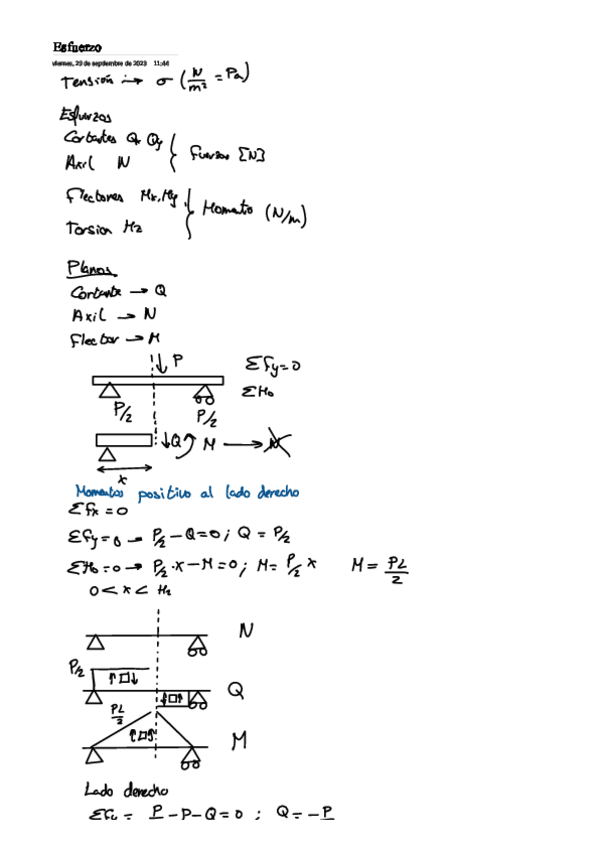 Esfuerzo
viernes, 29 de septiembre de 2023 11:44
Tensión → σ (N/m² = Pa)
Esfuerzos
Cortantes Qx Qy
Axil N
Fuerzas [N]
Flectores Mx, My
Torsion Mz
Momento (N/m)
Planos
Cortante → Q
Axil → N
Flector → M
P
ΣFy=0
ΣMo
P/2 P/2
Q M → N
x
Momentos positivo al lado derecho
ΣFx = 0
ΣFy = 0 → P/2 - Q = 0 ; Q = P/2
ΣMo = 0 → P/2 · x - M = 0 ; M = P/2 x M = PL/2
N
P/2
Q
PL/2
M
Lado derecho